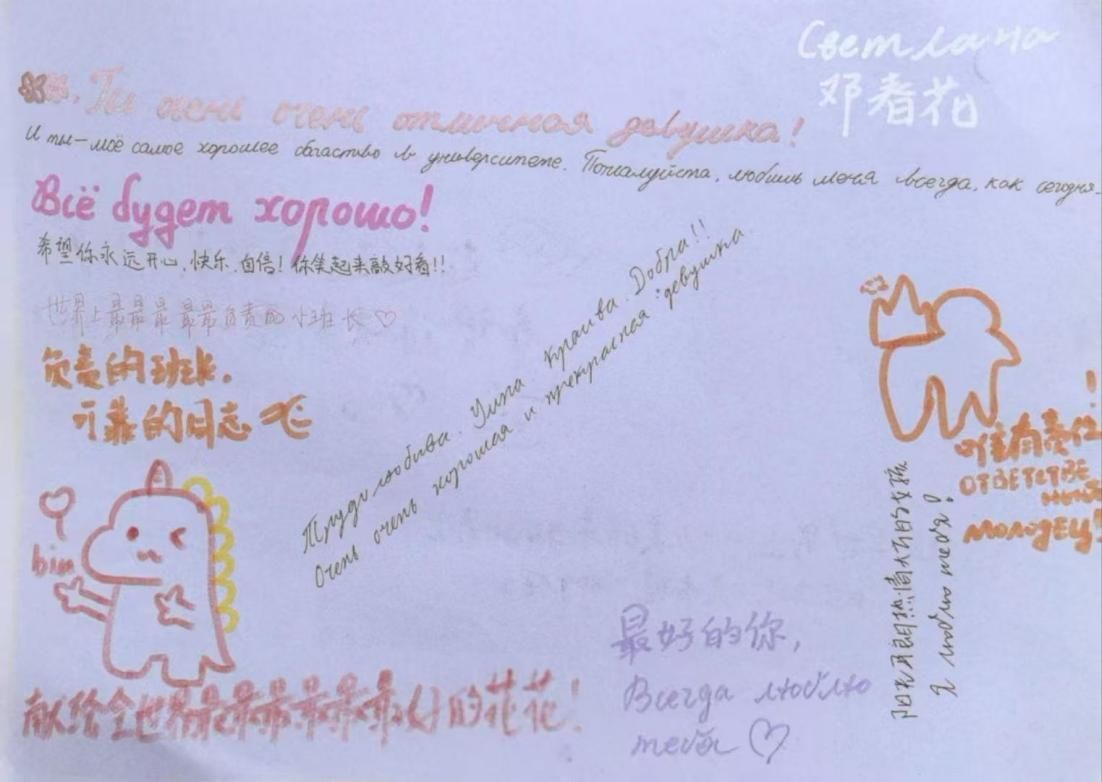 Светлана
邓春花
花花, Ты очень очень отличная девушка!
И ты—моё самое хорошее багаство в университете. Пожалуйста, любишь меня всегда, как сегодня.
Всё будет хорошо!
希望你永远开心,快乐,自信!你笑起来敲好看!!
世界上最最最最最负责的小班长♡
负责的班长.
可靠的同志
Трудолюбива. Умна. Красива. Добра!!
Очень очень хорошая и прекрасная девушка.
biu
献给全世界最最最最最最好的花花!
最好的你,
Всегда люблю
тебя ♡
的女孩
Я люблю тебя!
有责任!
ОТВЕТСТВЕ
ННЫЙ
МОЛОДЕЦ!